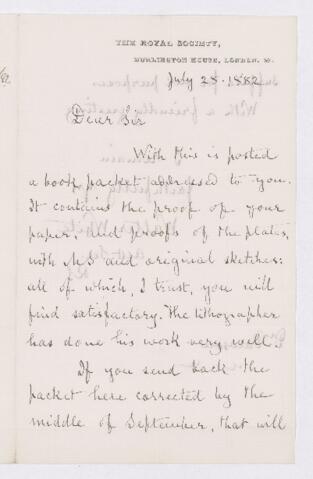 THE ROYAL SOCIETY,
BURLINGTON HOUSE, LONDON. W.
July 28. 1882
Dear Sir
With this is posted
a book packet addressed to you.
It contains the proof of your
paper, and proofs of the plates,
with MS and original sketches:
all of which, I trust, you will
find satisfactory. The lithographer
has done his work very well.
If you send back the
packet here corrected by the
middle of September, that will